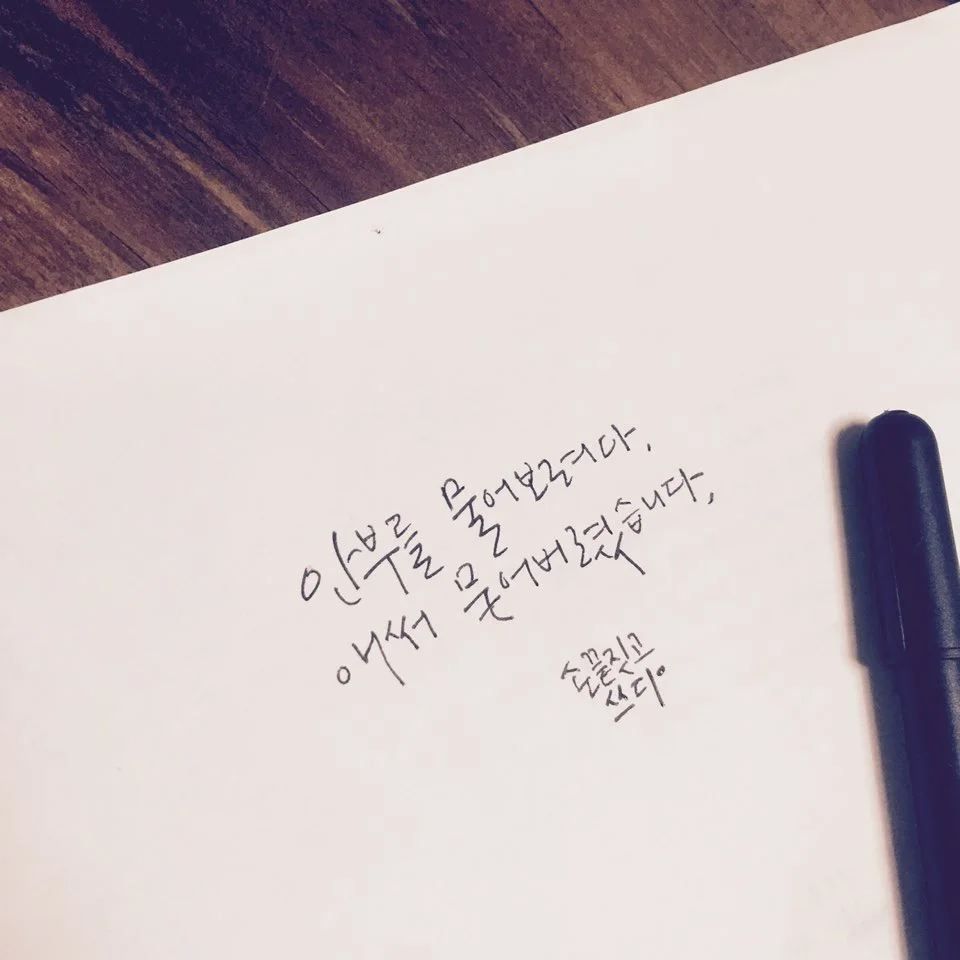 안부를 물어보려다,
애써 묻어버렸습니다,
손끝짓고
쓰다。